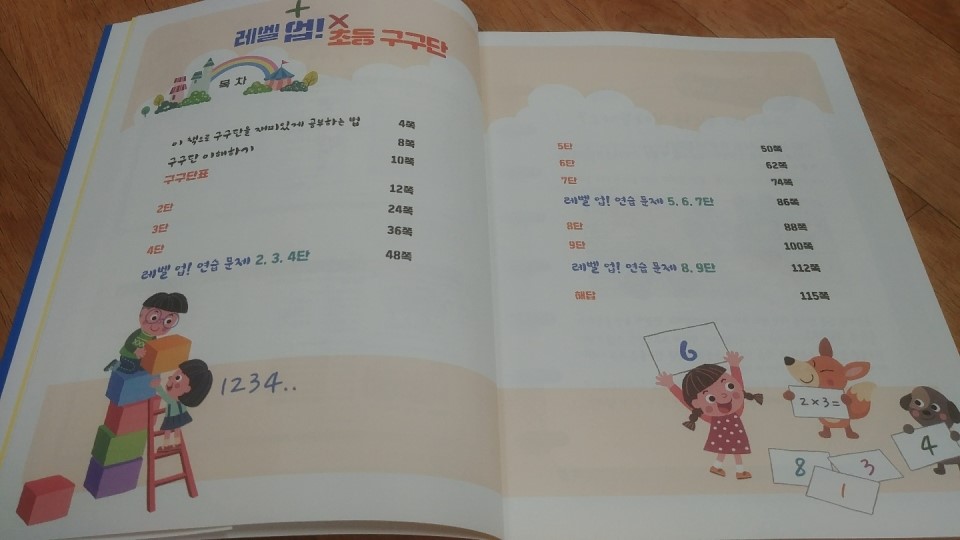 레벨 업! 초등 구구단
목차
이 책으로 구구단을 재미있게 공부하는 법 4쪽
구구단 이해하기 8쪽
구구단표 10쪽
2단 12쪽
3단 24쪽
4단 36쪽
레벨 업! 연습 문제 2. 3. 4단 48쪽
1234..
5단 50쪽
6단 62쪽
7단 74쪽
레벨 업! 연습 문제 5. 6. 7단 86쪽
8단 88쪽
9단 100쪽
레벨 업! 연습 문제 8. 9단 112쪽
해답 115쪽
6
2×3=
4
8
3
1